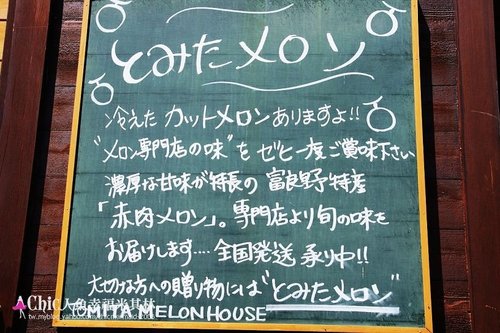 とみたメロン
冷えた カットメロンありますよ!!
"メロン専門店の味"を ぜヒ一度ご賞味下さい
濃厚な甘味が特長の 富良野特産
「赤肉メロン」。専門店より旬の味を
お届けします…. 全国発送 承り中!!
大切な方への贈り物には"とみたメロン"
TOMITA MELON HOUSE
AChic人魚幸福光其林